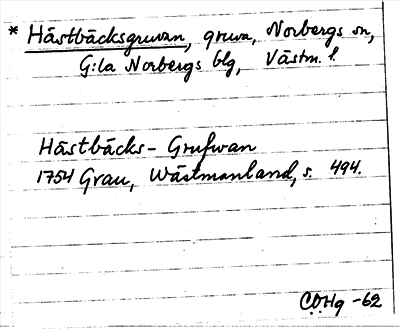 * Hästbäcksgruvan, gruva, Norbergs sn,
G:la Norbergs blg, Västm. l.
Hästbäcks- Grufwan
1754 Grau, Wästmanland, s. 494.
C.O.Hg -62